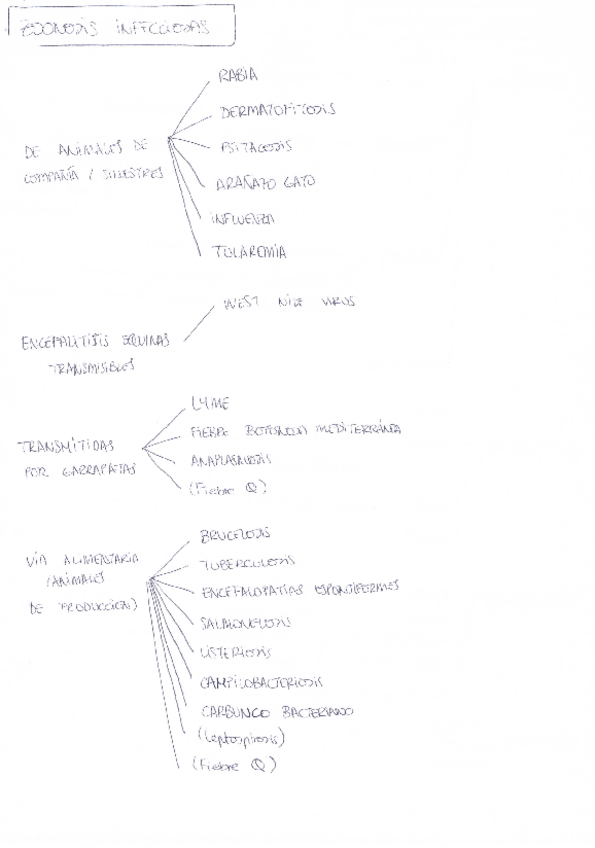 ZOONOSIS INFECCIOSAS
RABIA
DERMATOFITOSIS
PSITACOSIS
DE ANIMALES DE
COMPAÑÍA / SILVESTRES
ARAÑAZO GATO
INFLUENZA
TULAREMIA
WEST NILE VIRUS
ENCEFALITIS EQUINAS
TRANSMISIBLES
LYME
FIEBRE BOTONOSA MEDITERRÁNEA
TRANSMITIDAS
POR GARRAPATAS
ANAPLASMOSIS
(Fiebre Q)
BRUCELOSIS
VÍA ALIMENTARIA
(ANIMALES
DE PRODUCCIÓN)
TUBERCULOSIS
ENCEFALOPATÍAS ESPONGIFORMES
SALMONELOSIS
LISTERIOSIS
CAMPILOBACTERIOSIS
CARBUNCO BACTERIANO
(Leptospirosis)
(Fiebre Q)